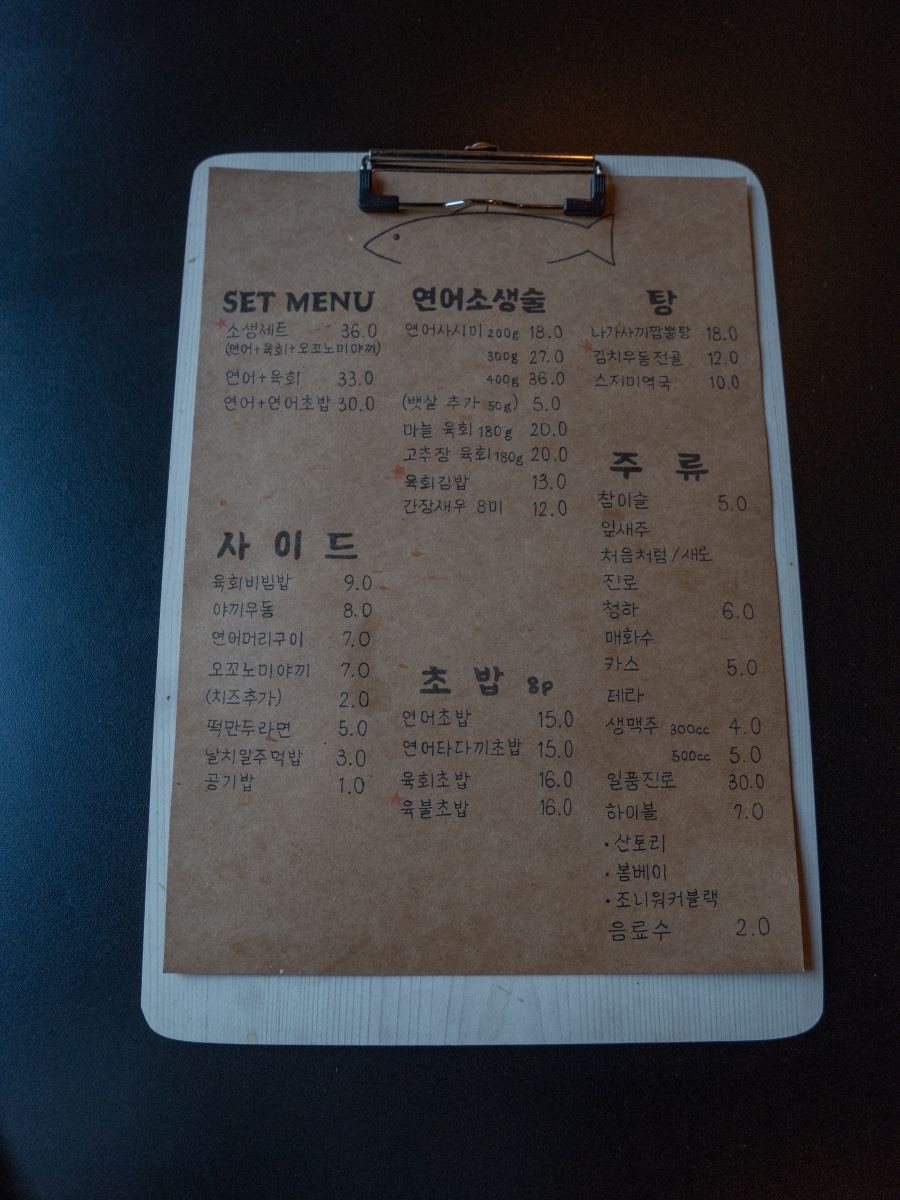 SET MENU
소생세트 36.0
(연어+육회+오꼬노미야끼)
연어+육회 33.0
연어+연어초밥 30.0
사이드
육회비빔밥 9.0
야끼우동 8.0
연어머리구이 7.0
오꼬노미야끼 7.0
(치즈추가) 2.0
떡만두라면 5.0
날치알주먹밥 3.0
공기밥 1.0
연어소생술
연어사시미 200g 18.0
300g 27.0
400g 36.0
(뱃살 추가 50g) 5.0
마늘 육회 180g 20.0
고추장 육회 180g 20.0
육회김밥 13.0
간장새우 8미 12.0
초밥 8p
연어초밥 15.0
연어타다끼초밥 15.0
육회초밥 16.0
육불초밥 16.0
탕
나가사끼짬뽕탕 18.0
김치우동전골 12.0
스지미역국 10.0
주류
참이슬 5.0
잎새주
처음처럼/새로
진로
청하 6.0
매화수
카스 5.0
테라
생맥주 300cc 4.0
500cc 5.0
일품진로 30.0
하이볼 7.0
·산토리
·봄베이
·조니워커블랙
음료수 2.0